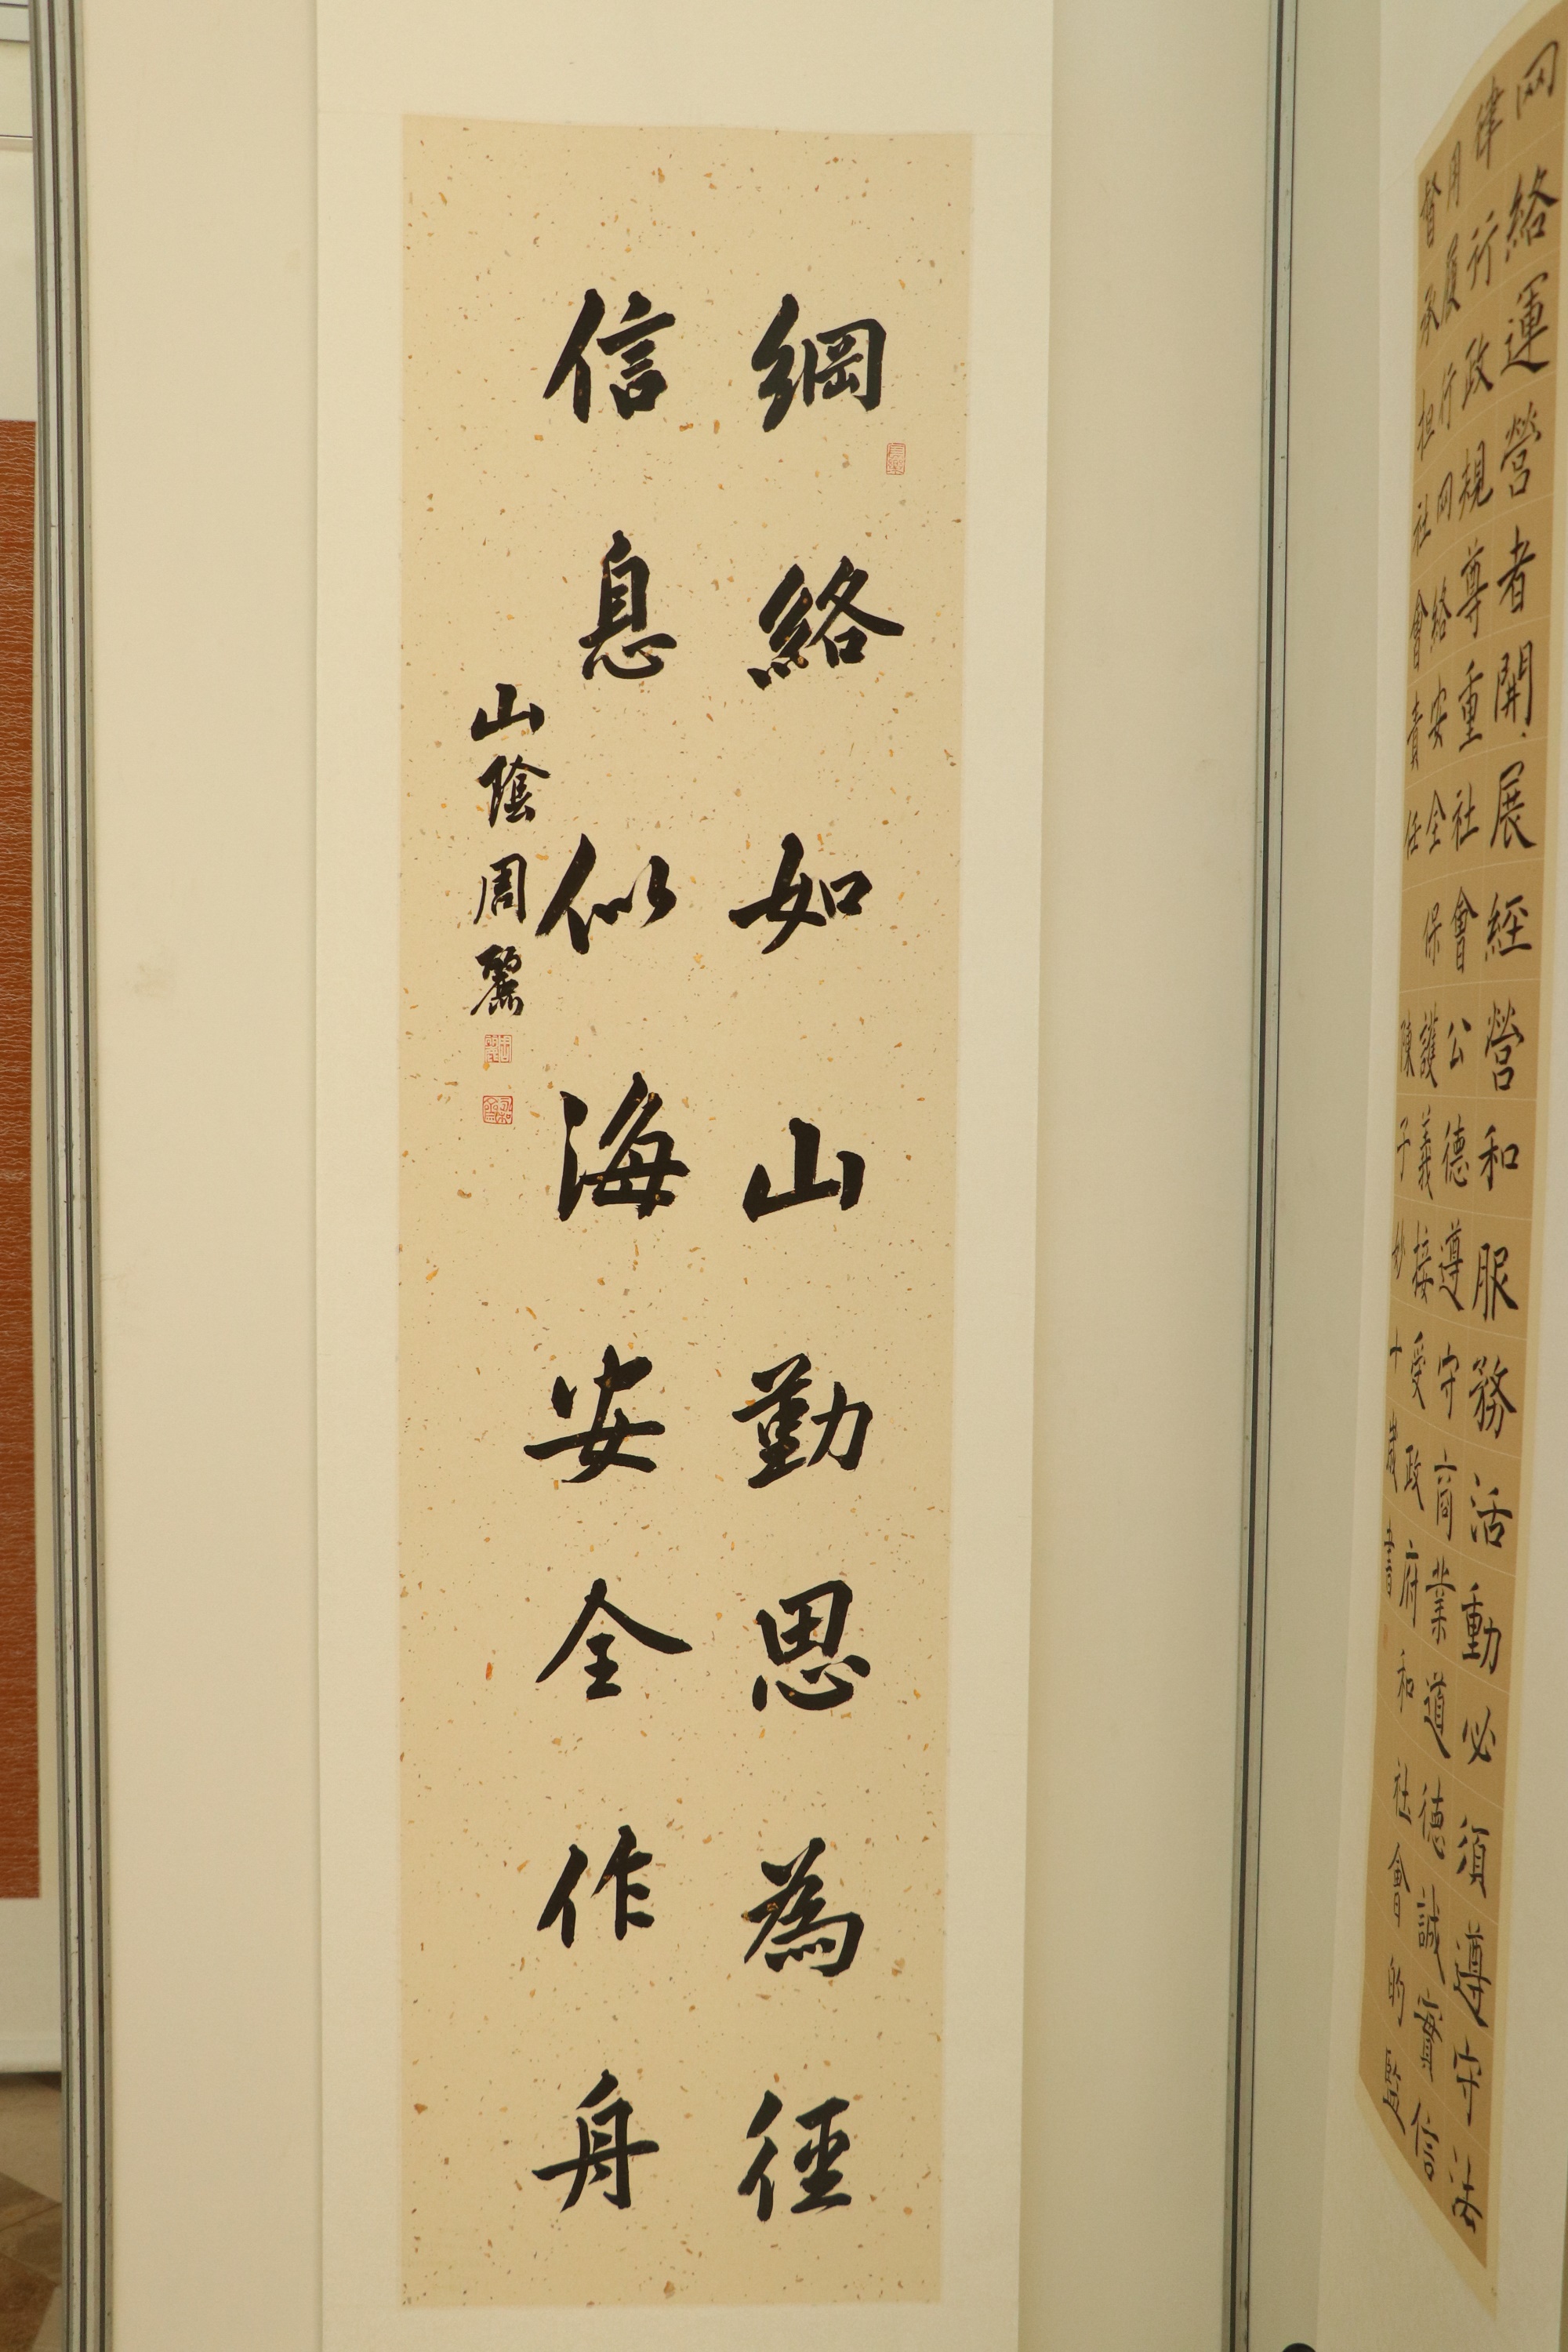 綱絡如山勤思為徑
信息似海安全作舟
山陰周麗
网絡運營者開展經營和服務活動必須遵守法
律行政規尊重社會公德遵守商業道德誠實信
用履行网絡安全保護義接受政府和社會的監
督承担社會責任
陳子妙十歲書